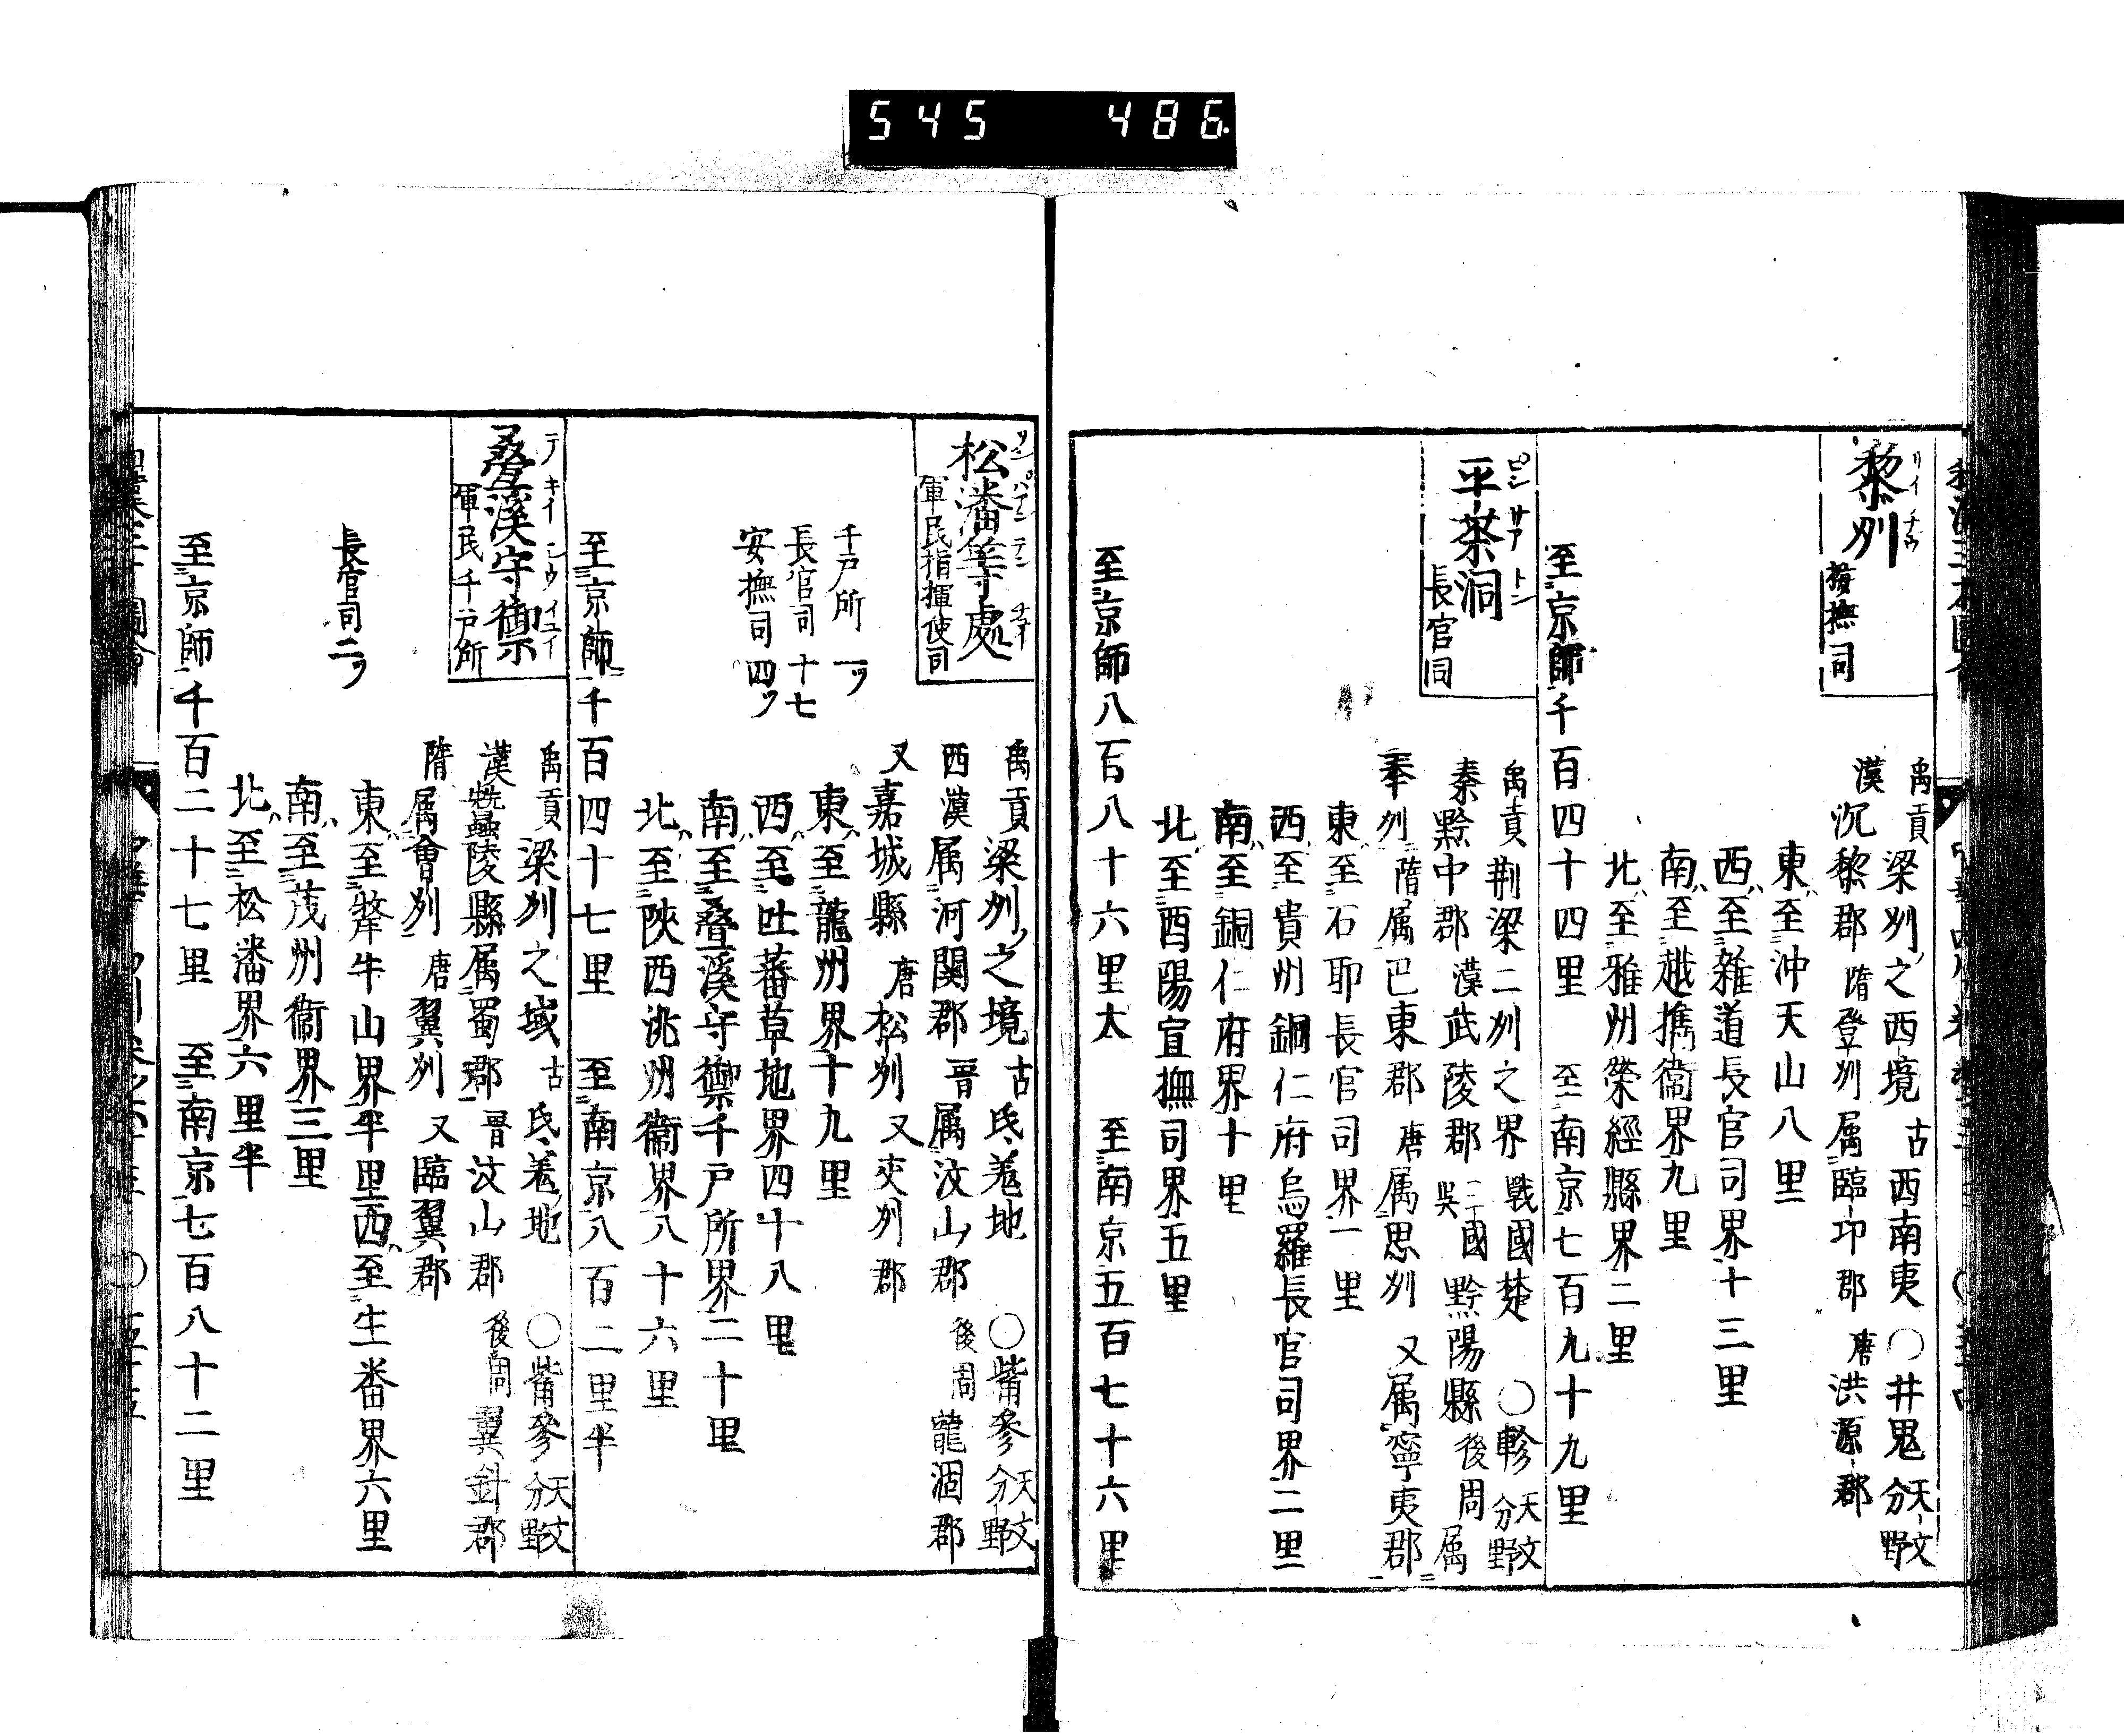 545 486
黎州
リイ チウ
按撫司
禹貢梁州之西境 古西南夷 ○井鬼 天文分野
漢沉黎郡 隋登州属臨卭郡 唐洪源郡
東至沖天山八里
西至雜道長官司界十三里
南至越擕衞界九里
北至雅州榮經縣界二里
至京師千百四十四里 至南京七百九十九里
平茶洞
ピン サア トン
長官司
禹貢荆梁二州之界 戰國楚 ○軫 天文分野
秦黔中郡 漢武陵郡 三國呉 黔陽縣 後周属
奉州 隋属巴東郡 唐属思州 又属寧夷郡
東至石耶長官司界一里
西至貴州銅仁府烏羅長官司界二里
南至銅仁府界十里
北至酉陽宣撫司界五里
至京師八百八十六里太 至南京五百七十六里
松潘等處
軍民指揮使司
禹貢梁州之境 古氐羗地 ○觜參 天文分野
西漢属河関郡 晋属汶山郡 後周龍涸郡
又嘉城縣 唐松州 又交州郡
千戸所 一ツ
長官司 十七
安撫司 四ツ
東至龍州界十九里
西至吐蕃草地界四十八里
南至疊溪守禦千戸所界二十里
北至陜西洮州衞界八十六里
至京師千百四十七里 至南京八百二里半
疊溪守禦
軍民千戸所
禹貢梁州之域 古氐羗地 ○觜參 天文分野
漢蠶陵縣属蜀郡 晋汶山郡 後周翼針郡
隋属會州 唐翼州 又臨翼郡
長官司二ツ
東至犛牛山界半里西至生番界六里
南至茂州衞界三里
北至松潘界六里半
至京師千百二十七里 至南京七百八十二里